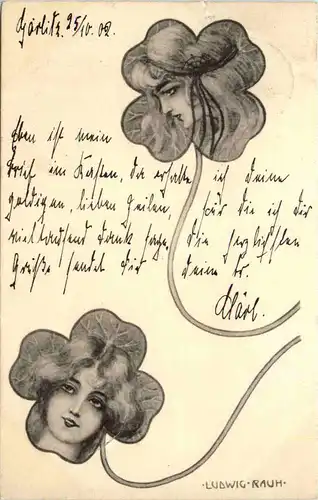 Görlitz 25/10.02.
Eben ist mein
Brief im Kasten, da erhalte ich deine
goldigen, lieben Zeilen, für die ich dir
vieltausend Dank sage. Die herzlichsten
Grüße sendet dir deine tr.
Klärl.
·LUDWIG·RAUH·